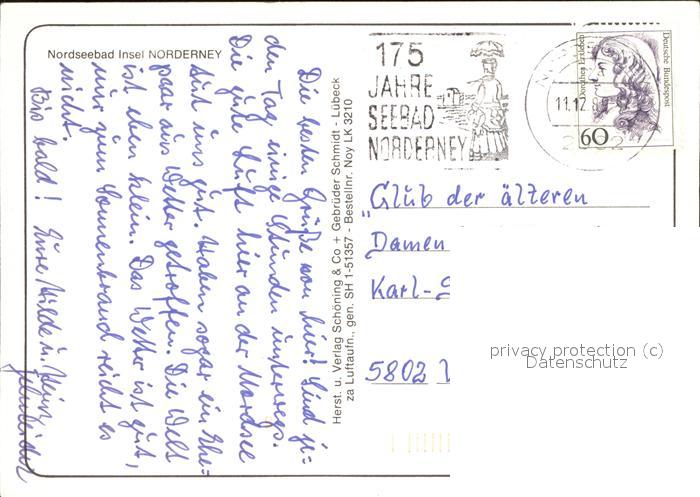 Nordseebad Insel NORDERNEY
Die besten Grüße von hier! Sind je-
den Tag einige Stunden unterwegs.
Die gute Luft hier an der Nordsee
tut uns gut. Haben sogar ein Ehe-
paar aus Wetter getroffen. Die Welt
ist eben klein. Das Wetter ist gut,
nur zum Sonnenbrand reicht es
nicht.
Bis bald! Eure Hilde u. Heinz
Herst. u. Verlag Schöning & Co + Gebrüder Schmidt - Lübeck
za Luftaufn., gen. SH 1-51357 - Bestellnr. Noy LK 3210
175
JAHRE
SEEBAD
NORDERNEY
11.12.8
Deutsche Bundespost
60
„Club der älteren
Damen
Karl-
5802
privacy protection (c)
Datenschutz